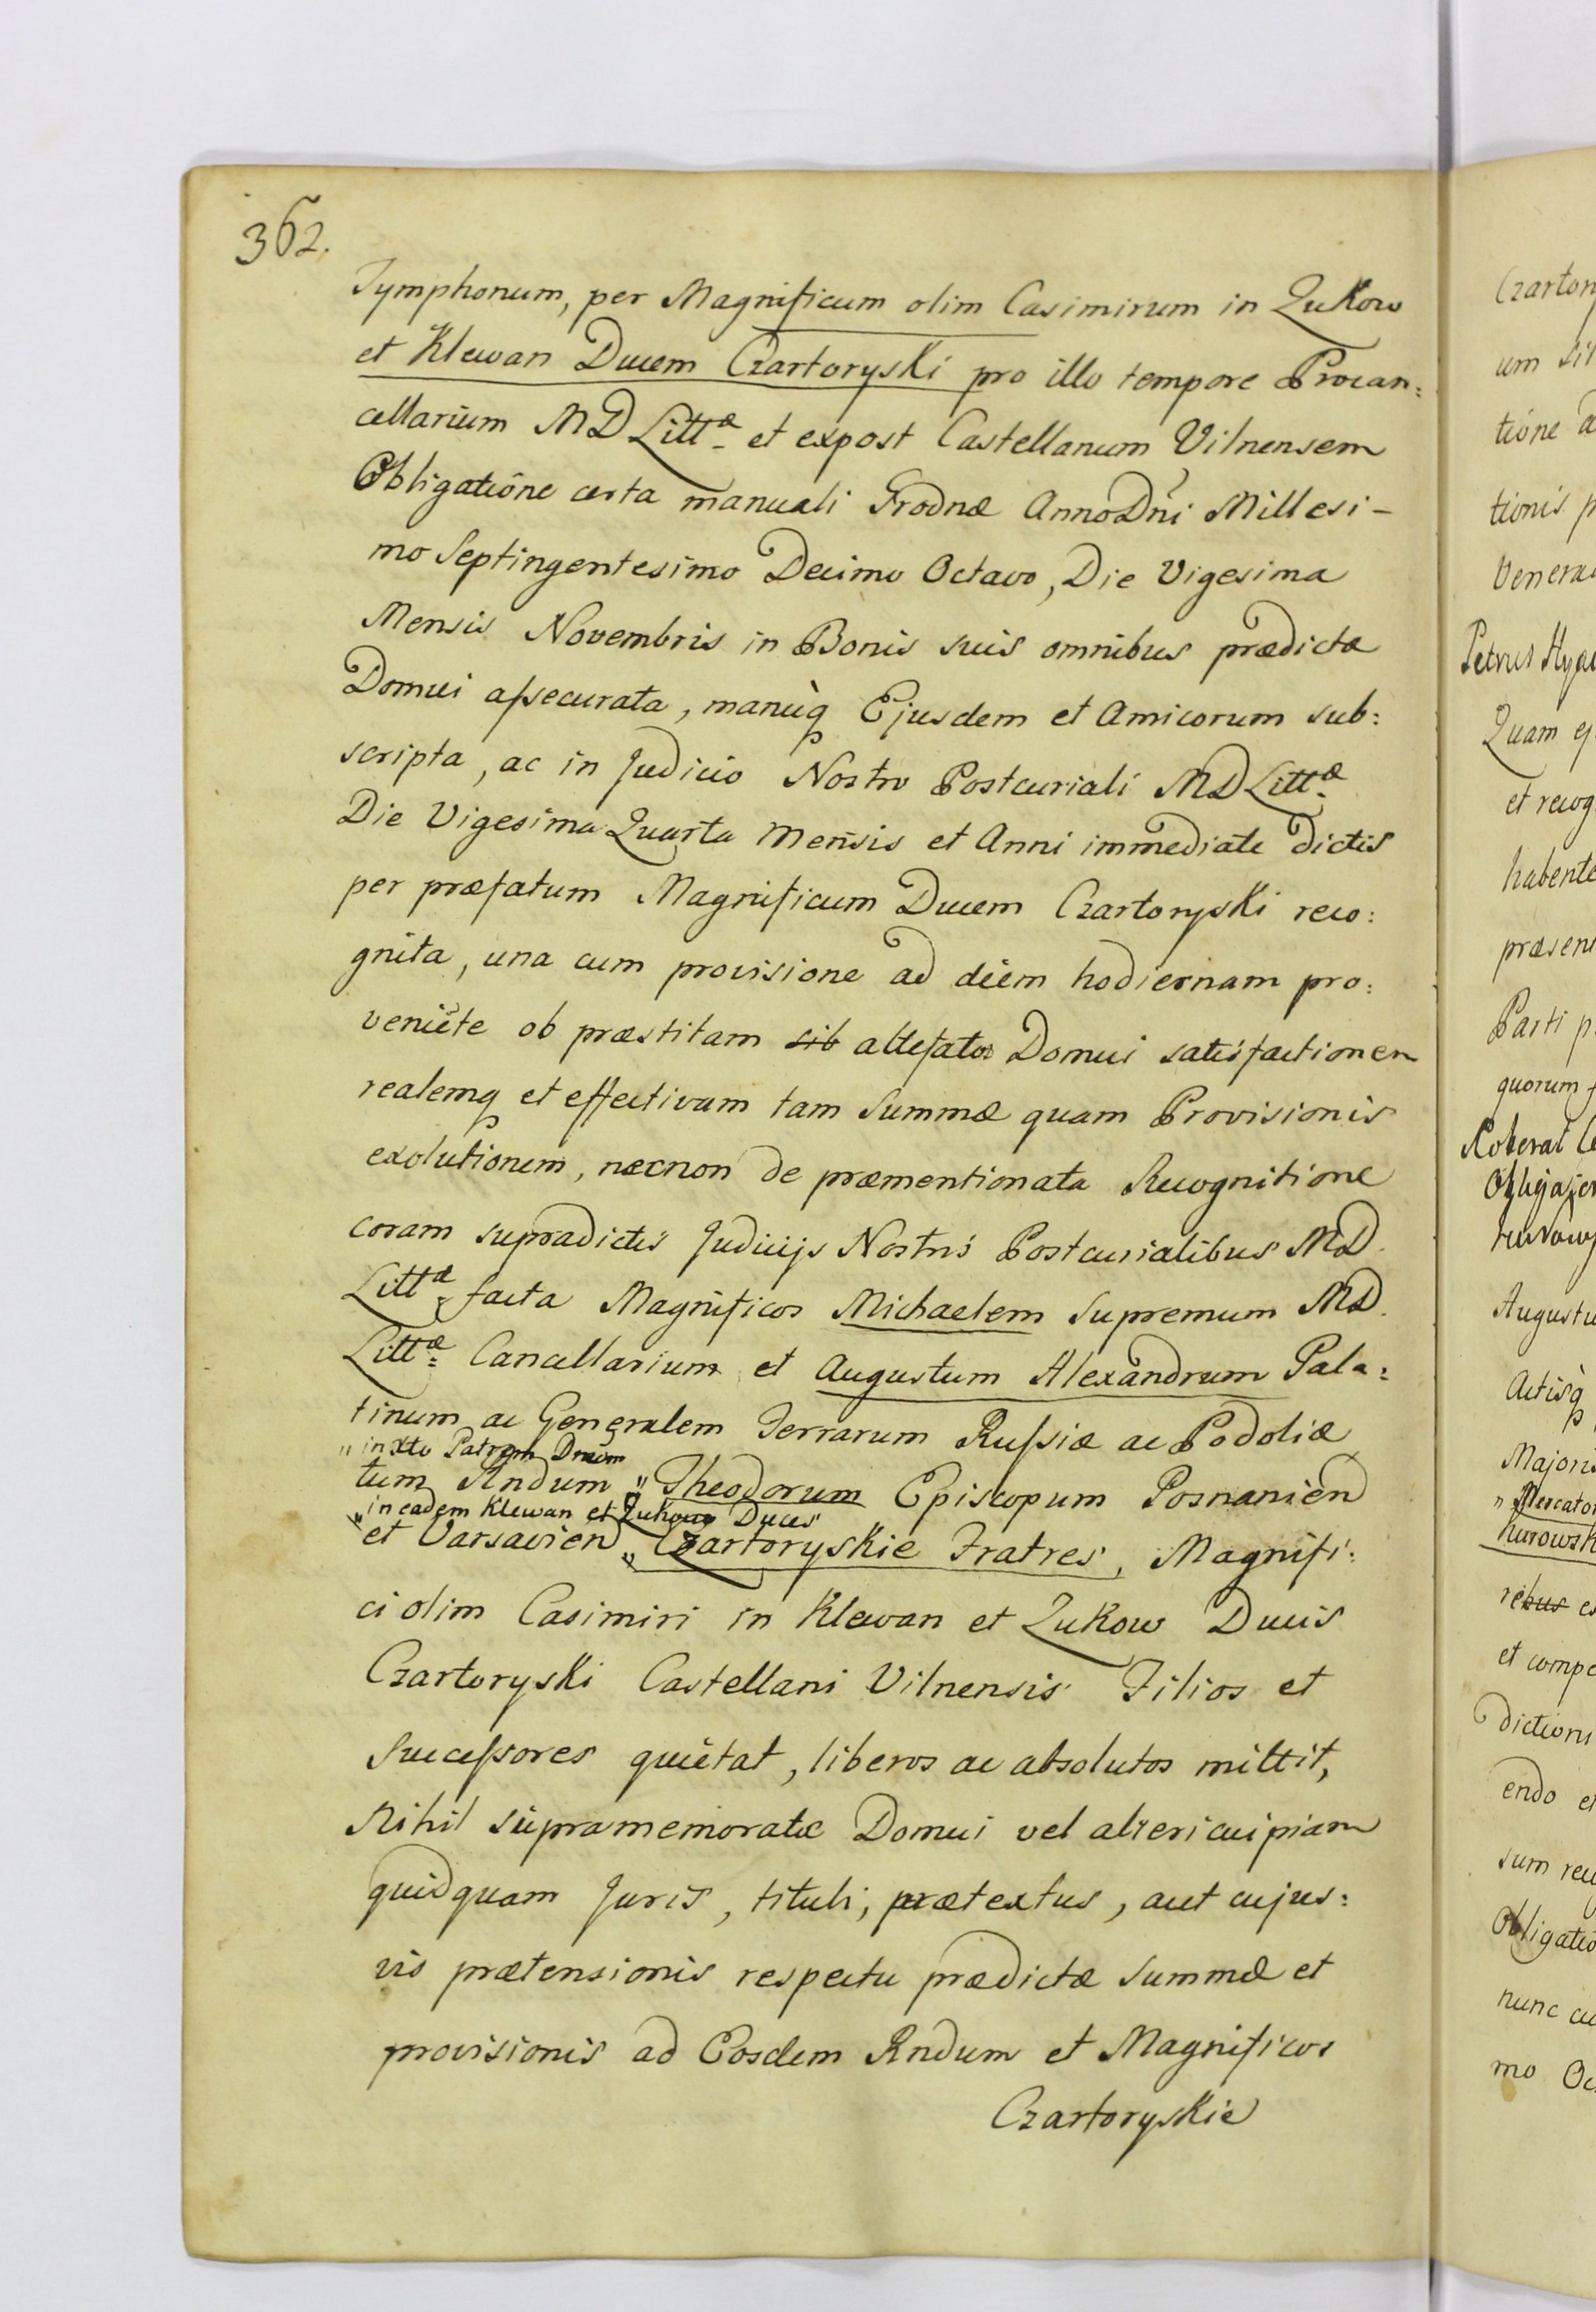 362.
Tymphonum, per Magnificum olim Casimirum in Zukow
et Klewan Ducem Czartoryski pro illo tempore Procan:
cellarium MD Littæ et expost Castellanum Vilnensem
Obligatione certa manuali Grodnæ Anno Dñi Millesi-
mo Septingentesimo Decimo Octavo, Die Vigesima
Mensis Novembris in Bonis suis omnibus prædictæ
Domui assecurata, manuq Ejusdem et Amicorum sub:
scripta, ac in Judicio Nostro Postcuriali MD Littæ
Die Vigesima Quarta Mensis et Anni immediate dictis
per præfatum Magnificum Ducem Czartoryski reco:
gnita, una cum provisione ad diem hodiernam pro:
veniēte ob præstitam sib attefatæ Domui satisfactionem
realemq et effectivam tam Summæ quam Provisionis
exolutionem, necnon de præmentionata Recognitione
coram supradictis Judicijs Nostris Postcurialibus MD.
Littæ facta Magnificos Michaelem Supremum MD.
Littæ Cancellarium et Augustum Alexandrum Pala:
tinum ac Generalem Terrarum Russiæ ac Podoliæ
" in Xto Patrem Dnum
tum Rndum " Theodorum Episcopum Posnanien
" in eadem Klewan et Zukow Duces
et Varsavien " Czartoryskie Fratres, Magnifi:
ci olim Casimiri in Klewan et Zukow Ducis
Czartoryski Castellani Vilnensis Filios et
Successores quietat, liberos ac absolutos mittit,
Nihil supramemoratæ Domui vel alteri cuipiam
quidquam Juris, tituli, prætextus, aut cujus:
vis prætensionis respectu prædictæ Summæ et
provisionis ad Eosdem Rndum et Magnificos
Czartoryskie
Petrus
Quam
et recog
habente
Parti
quorum
Augustu
rebus
et compe
endo
nunc
mo